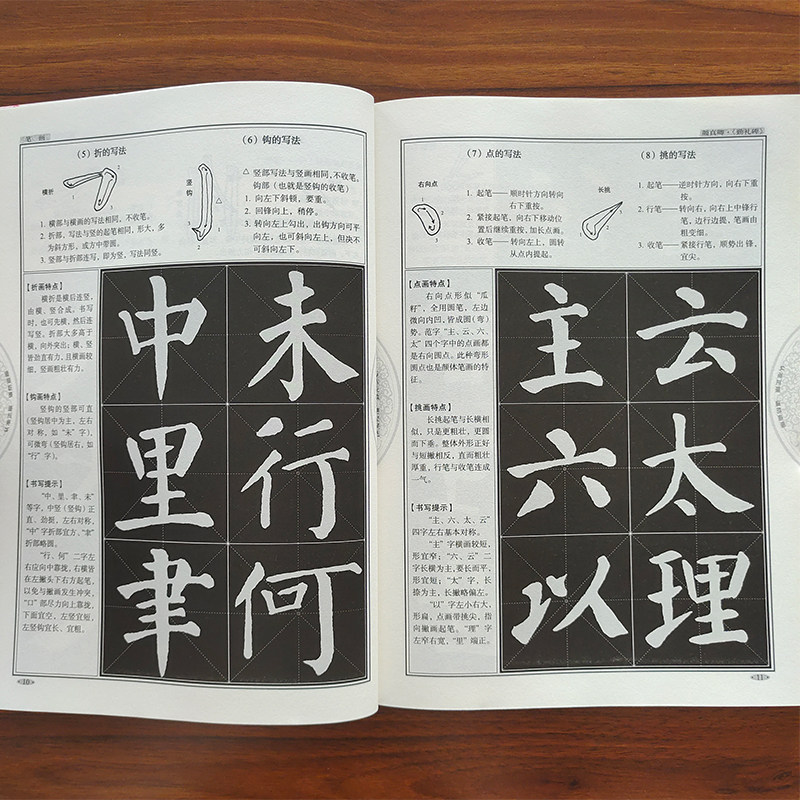 笔 画
(5) 折的写法
横折
1. 横部与横画的写法相同,不收笔。
2. 折部,折写与竖的起笔相同,形大,多
为斜方形,或方中带圆。
3. 竖部与折部连写,即为竖,写法同竖。
(6) 钩的写法
竖
钩
△ 竖部写法与竖画相同,不收笔。
钩部(也就是竖钩的收笔)
1. 向左下斜顿,要重。
2. 回锋向上,稍停。
3. 转向左上勾出,出钩方向可平
向左,也可斜向左上,但决不
可斜向左下。
【折画特点】
横折是横后连竖,
由横、竖合成。书写
时,也可先横,然后连
写竖。折部大多高于
横,向外突出;横、竖
皆劲直有力,且横画较
细,竖画粗壮有力。
【钩画特点】
竖钩的竖部可直
(竖钩居中为主,左右
对称,如“未”字),
可微弯(竖钩居右,如
“行”字)。
【书写提示】
“中、里、聿、未”
等字,中竖(竖钩)正
直、劲挺,左右对称。
“中”字折部宜方、“聿”
折部略圆。
“行、何”二字左
右应向中靠拢,右横皆
在左撇头下右方起笔,
以免与撇画发生冲突,
“口”部尽力向上靠拢,
下面宜空,左竖宜短,
左竖钩宜长、宜粗。
中 未
里 行
聿 何
10
颜真卿·《勤礼碑》
(7) 点的写法
右向点
1. 起笔—— 顺时针方向转向
右下重按。
2. 紧接起笔,向右下移动位
置后继续重按,加长点画。
3. 收笔—— 转向左上,圆转
从点内提起。
(8) 挑的写法
长挑
1. 起笔——逆时针方向,向右下重
按。
2. 行笔——转向右,向右上中锋行
笔,边行边提,笔画由
粗变细。
3. 收笔——紧接行笔,顺势出锋,
宜尖。
【点画特点】
右向点形似“瓜
籽”,全用圆笔,左边
微向内凹,皆成圆(弯)
势。范字“主、云、六、
太”四个字中的点画都
是右向圆点。此种弯形
圆点也是颜体笔画的特
征。
【挑画特点】
长挑起笔与长横相
似,只是更粗壮,更圆
而下垂。整体外形正好
与短撇相反,直而粗壮
厚重,行笔与收笔连成
一气。
【书写提示】
“主、六、太、云”
四字左右基本对称。
“主”字横画较短,
形宜窄;“六、云”二
字长横为主,要长而平,
形宜短;“太”字,长
捺为主,长撇略偏左。
“以”字左小右大,
形扁,点画带挑尖,指
向撇画起笔。“理”字
左窄右宽,“里”端正。
主 云
六 太
以 理
11